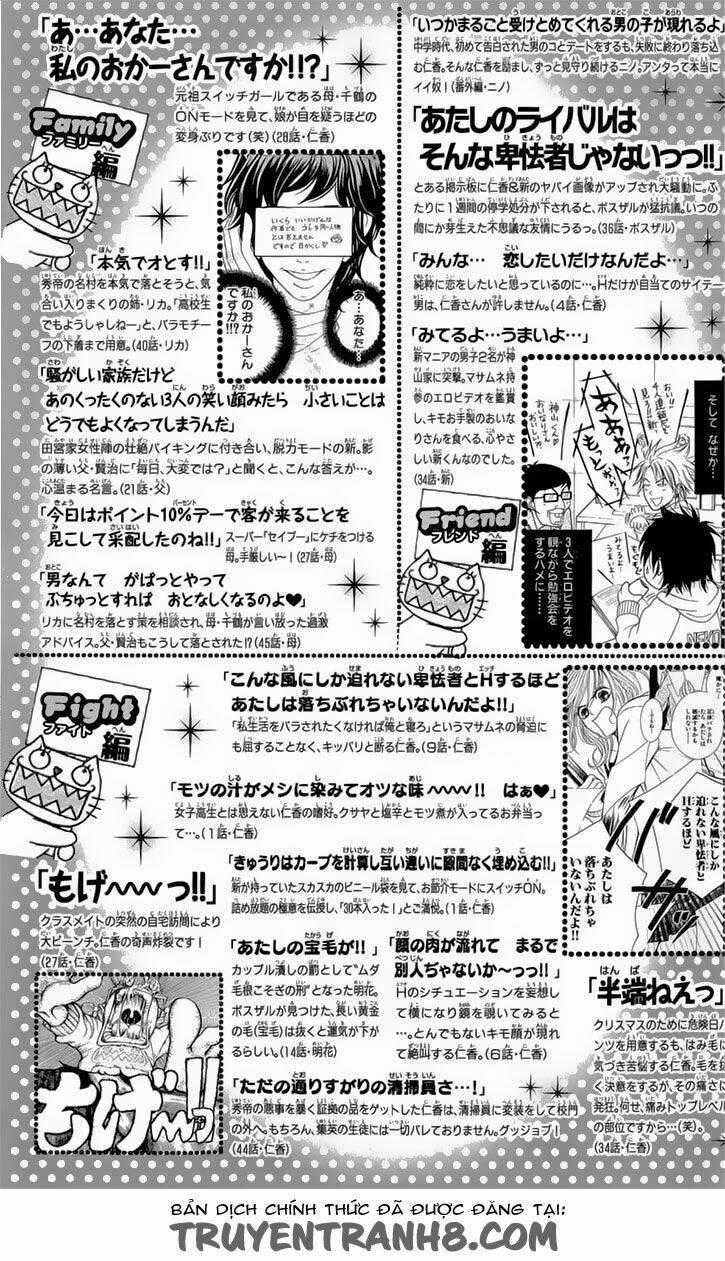 「あ…あなた…
私のおかーさんですか!!?」
元祖スイッチガールである母・千鶴の
ONモードを見て、娘が目を疑うほどの
変身ぶりです(笑)(28話・仁香)
Family
ファミリー
編
あ…あなた…
私のおかーさん
ですか!!?
「本気でオとす!!」
秀帝の名村を本気で落とそうと、気
合い入りまくりの姉・リカ。「高校生
でもようしゃしねー」と、バラモチー
フの下着まで用意。(40話・リカ)
「騒がしい家族だけど
あのくったくのない3人の笑い顔みたら 小さいことは
どうでもよくなってしまうんだ」
田宮家女性陣の壮絶バイキングに付き合い、脱力モードの新。影
の薄い父・賢治に「毎日、大変では?」と聞くと、こんな答えが…。
心温まる名言。(21話・父)
「今日はポイント10%デーで客が来ることを
見こして采配したのね!!」
スーパー「セイブー」にケチをつける
母。手厳しい〜!(27話・母)
「男なんて がばっとやって
ぶちゅっとすれば おとなしくなるのよ♥」
リカに名村を落とす策を相談され、母・千鶴が言い放った過激
アドバイス。父・賢治もこうして落とされた!?(45話・母)
「いつかまるごと受けとめてくれる男の子が現れるよ
中学時代、初めて告白された男のコとデートをするも、失敗に終わり落ち込
む仁香。そんな仁香を励まし、ずっと見守り続けるニノ。アンタって本当に
イイ奴!(番外編・ニノ)
「あたしのライバルは
そんな卑怯者じゃないっっ!!」
とある掲示板に仁香&新のヤバイ画像がアップされ大騒動に。ふ
たりに1週間の停学処分が下されると、ボスザルが猛抗議。いつの
間にか芽生えた不思議な友情にうるっ。(36話・ボスザル)
「みんな… 恋したいだけなんだよ…」
純粋に恋をしたいと思っているのに…。Hだけが目当てのサイテー
男は、仁香さんが許しません。(4話・仁香)
「みてるよ…うまいよ…」
新マニアの男子2名が神
山家に突撃。マサムネ持
参のエロビデオを鑑賞
し、キモお手製のおいな
りさんを食べる、心やさ
しい新くんなのでした。
(34話・新)
Friend
フレンド
編
そして なぜか…
3人でエロビデオを
観ながら勉強会を
するハメに……
Fight
ファイト
編
「こんな風にしか迫れない卑怯者とHするほど
あたしは落ちぶれちゃいないんだよ!!」
「私生活をバラされたくなければ俺と寝ろ」というマサムネの脅迫
にも屈することなく、キッパリと断る仁香。(9話・仁香)
こんな風にしか
迫れない卑怯者と
Hするほど
あたしは
落ちぶれちゃ
いないんだよ!!
「モツの汁がメシに染みてオツな味〜〜〜!! はぁ♥」
女子高生とは思えない仁香の嗜好。クサヤと塩辛とモツ煮が入ってるお弁当
って…。(1話・仁香)
「きゅうりはカーブを計算し互い違いに隙間なく埋め込む!!」
新が持っていたスカスカのビニール袋を見て、お節介モードにスイッチON。
詰め放題の極意を伝授し、「30本入った!」とご満悦。(1話・仁香)
「もげ〜〜〜っ!!」
クラスメイトの突然の自宅訪問により
大ピーンチ。仁香の奇声炸裂です!
(27話・仁香)
もげ〜〜っ!!
「あたしの宝毛が!!」
カップル潰しの罰として“ムダ
毛根こそぎの刑”となった明花。
ボスザルが見つけた、長い黄金
の毛(宝毛)は抜くと運気が下が
るらしい。(14話・明花)
「顔の肉が流れて まるで
別人ぢゃないか〜っっ!!」
Hのシチュエーションを妄想し
て横になり鏡を覗いてみると
…。とんでもないキモ顔が現れ
て絶叫する仁香。(6話・仁香)
「ただの通りすがりの清掃員さ…!」
秀帝の悪事を暴く証拠の品をゲットした仁香は、清掃員に変装をして校門
の外へ。もちろん、集英の生徒には一切バレておりません。グッジョブ!
(44話・仁香)
「半端ねえっ
クリスマスのために危険日パ
ンツを用意するも、はみ毛に
気づき苦悩する仁香。毛を抜
く決意をするが、その痛さに
発狂。何せ、痛みトップレベル
の部位ですから…(笑)。
(34話・仁香)
BẢN DỊCH CHÍNH THỨC ĐÃ ĐƯỢC ĐĂNG TẠI:
TRUYENTRANH8.COM